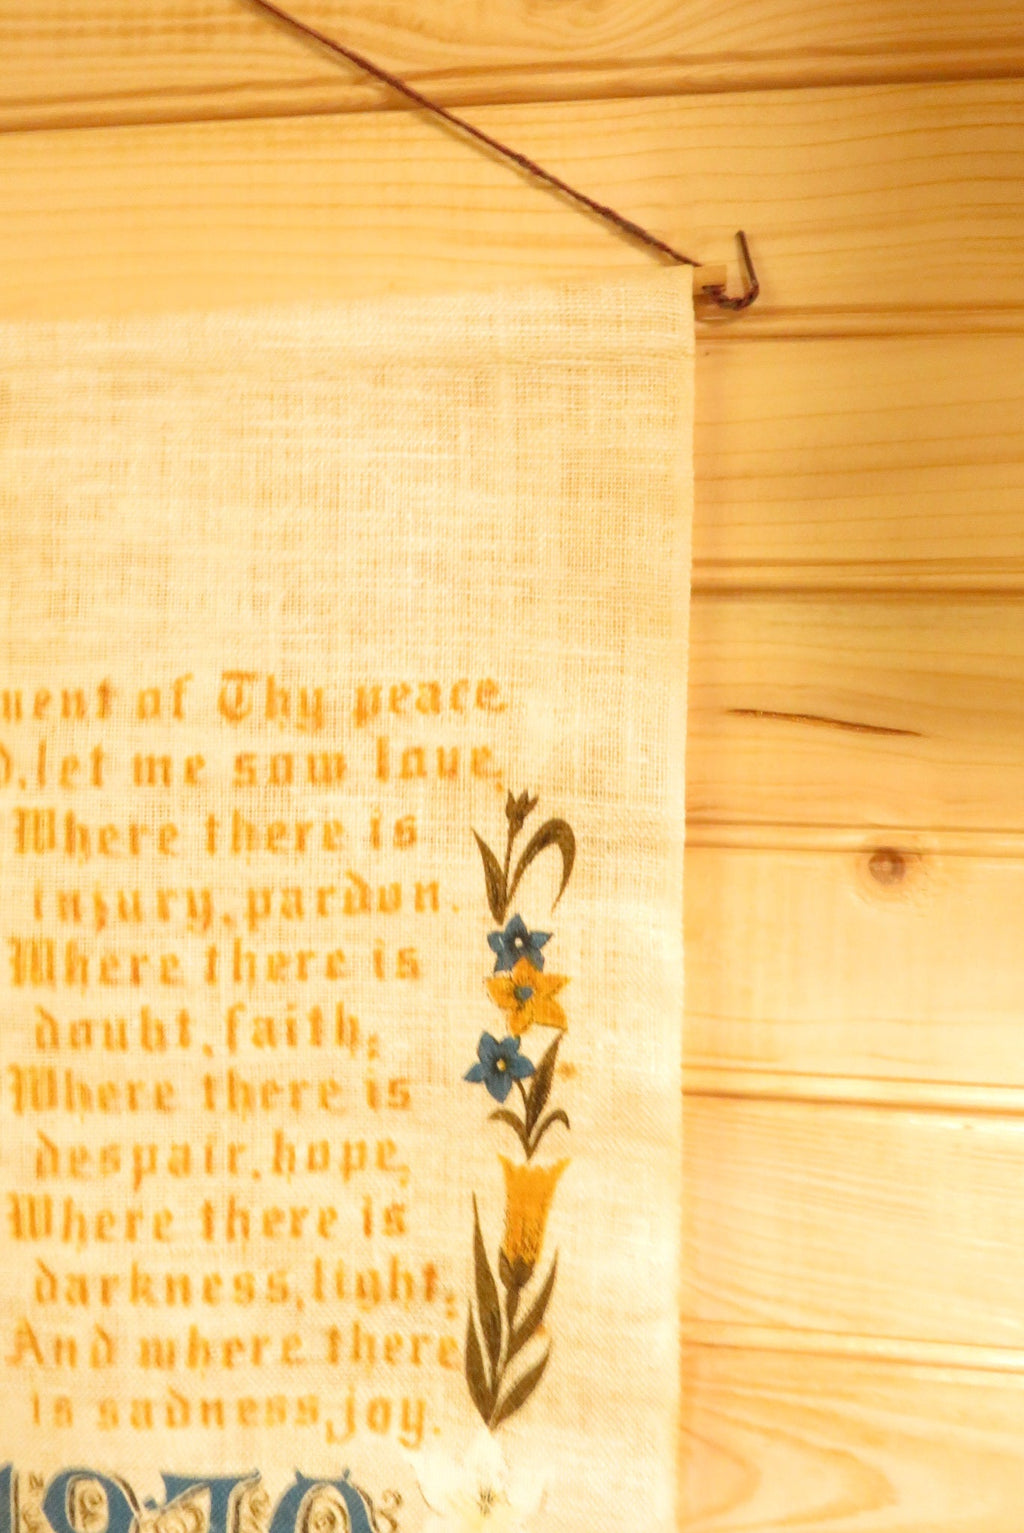 of Thy peace
let me sow love,
Where there is
injury, pardon.
Where there is
doubt, faith;
Where there is
despair, hope,
Where there is
darkness, light;
And where there
is sadness, joy.
1970